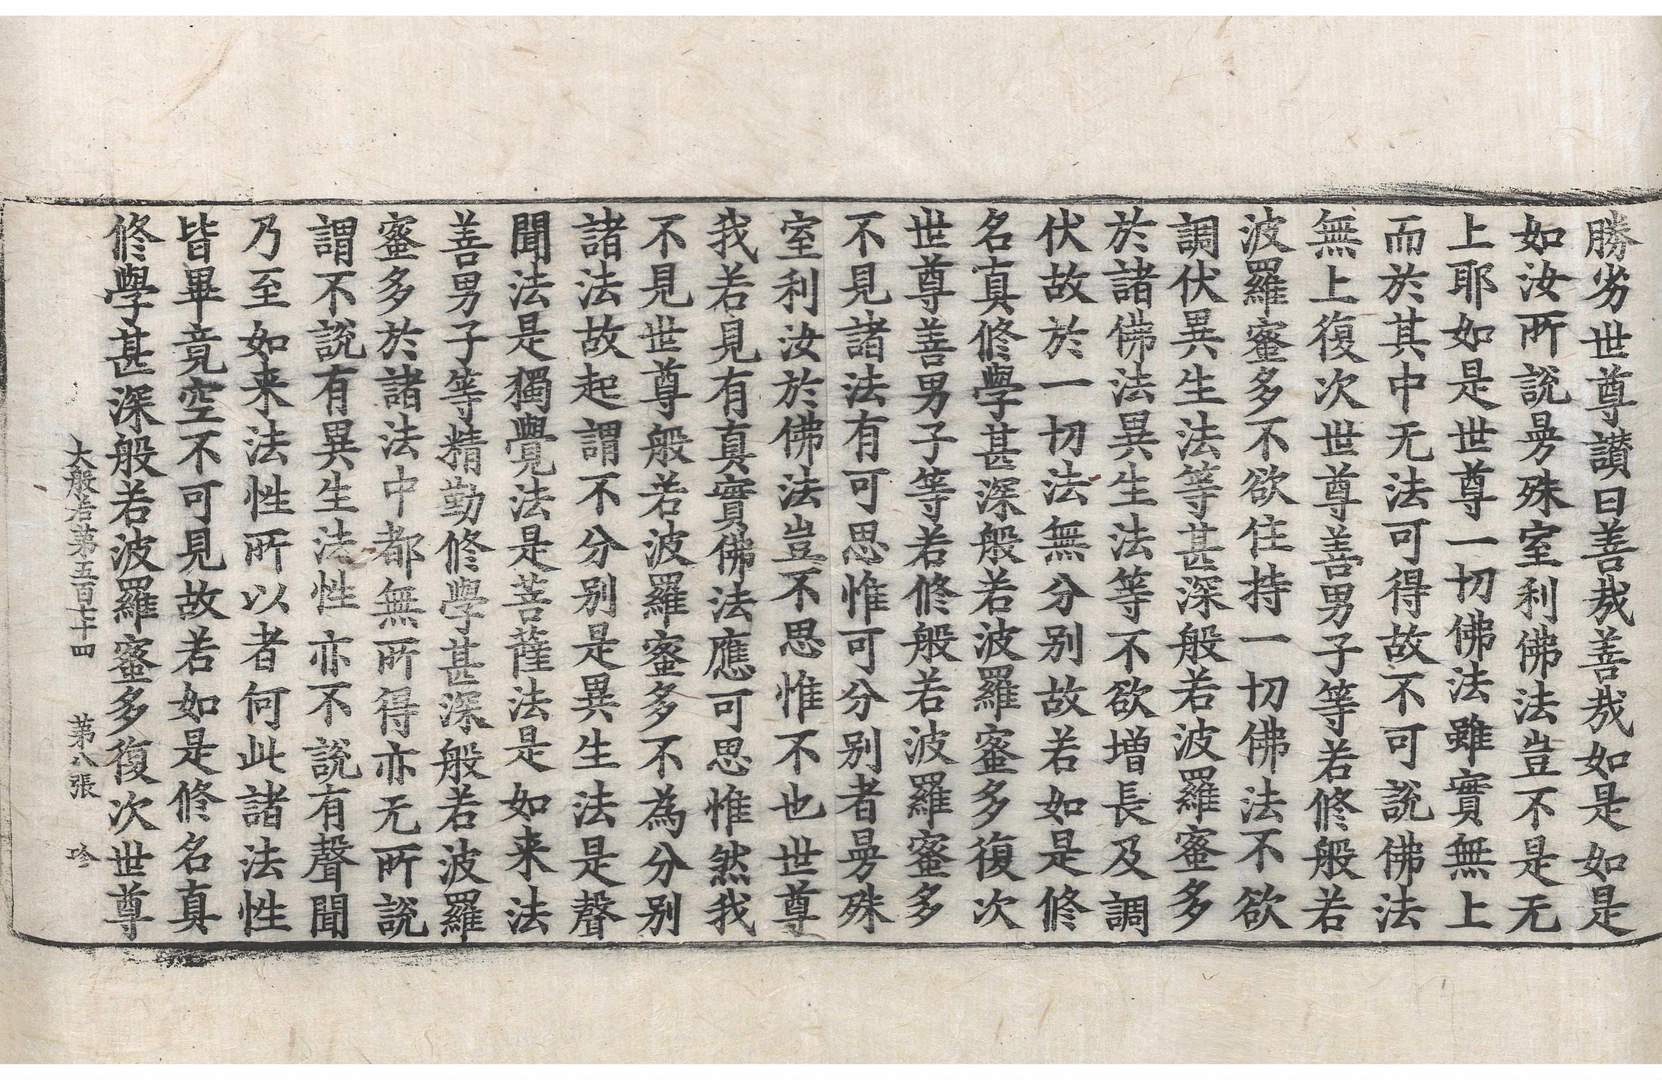 勝劣世尊讃曰善㢤善㢤如是如是
如汝所說曼殊室利佛法豈不是无
上耶如是世尊一切佛法雖實無上
而於其中无法可得故不可說佛法
無上復次世尊善男子等若修般若
波羅蜜多不欲住持一切佛法不欲
調伏異生法等甚深般若波羅蜜多
於諸佛法異生法等不欲增長及調
伏故於一切法無分别故若如是修
名真修學甚深般若波羅蜜多復次
世尊善男子等若修般若波羅蜜多
不見諸法有可思惟可分别者曼殊
室利汝於佛法豈不思惟不也世尊
我若見有真實佛法應可思惟然我
不見世尊般若波羅蜜多不為分别
諸法故起謂不分别是異生法是聲
聞法是獨覺法是菩薩法是如来法
善男子等精勤修學甚深般若波羅
蜜多於諸法中都無所得亦无所說
謂不說有異生法性亦不說有聲聞
乃至如来法性所以者何此諸法性
皆畢竟空不可見故若如是修名真
修學甚深般若波羅蜜多復次世尊
大般若第五百七十四 第八張 珍